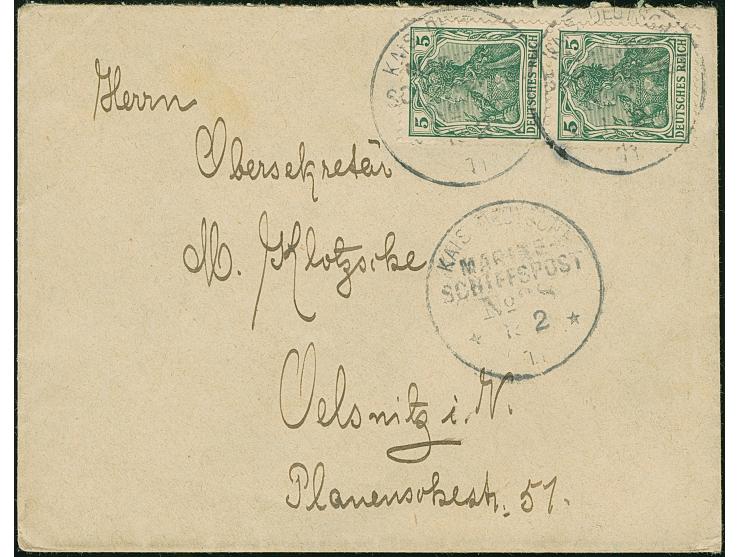 5 5 DEUTSCHES REICH
5 5 DEUTSCHES REICH
Herrn
Obersekretär
M. Klotzsche
KAIS. DEUTSCHE
MARINE-
SCHIFFSPOST
No
2
Oelsnitz i. V.
Plauenschestr. 51.